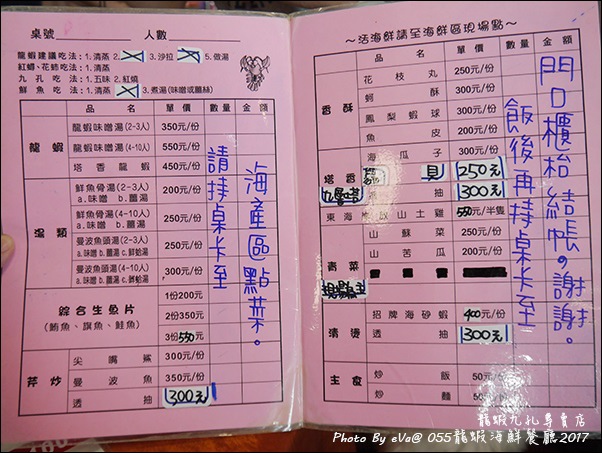 桌號 人數
龍蝦建議吃法：1.清蒸 3.沙拉 5.做湯
紅蟳、花蟳吃法：1.清蒸
九孔吃法：1.五味 2.紅燒
鮮魚吃法：1.清蒸 3.煮湯(味噌或薑絲)
品名 單價 數量 金額
龍蝦
龍蝦味噌湯(2-3人) 350元/份
龍蝦味噌湯(4-10人) 550元/份
塔香龍蝦 450元/份
湯類
鮮魚骨湯(2-3人) 200元/份
a.味噌 b.薑湯
鮮魚骨湯(4-10人) 250元/份
a.味噌 b.薑湯
曼波魚頭湯(2-3人) 250元/份
a.味噌 b.薑湯 c.鮮蛤湯
曼波魚頭湯(4-10人) 300元/份
a.味噌 b.薑湯 c.鮮蛤湯
綜合生魚片
(鮪魚、旗魚、鮭魚)
1份200元
2份350元
3份550元
芹炒
尖嘴鯊 300元/份
曼波魚 350元/份
透抽 300元
請持桌卡至
海產區點菜。
～活海鮮請至海鮮區現場點～
品名 單價 數量 金額
香酥
花枝丸 250元/份
蚵酥 300元/份
鳳梨蝦球 300元/份
魚皮 200元/份
塔香
海瓜子 300元/份
貝 250元
九層塔 抽 300元
東海放山土雞 550元/半隻
青菜
山蘇菜 250元/份
山苦瓜 200元/份
清燙
招牌海砂蝦 400元/份
透抽 300元
主食
炒飯 50元/份
炒麵 50元/份
飯後再持桌卡至
門口櫃枱結帳。謝謝。
龍蝦九孔專賣店
Photo By eVa@ 055龍蝦海鮮餐廳2017